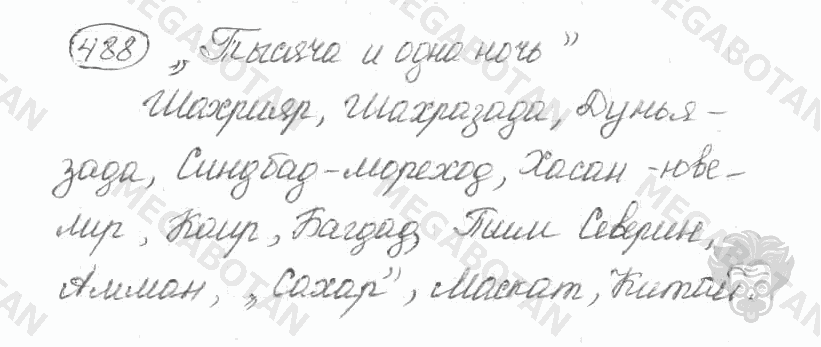 488 „Тысяча и одна ночь”
Шахрияр, Шахразада, Дунья-
зада, Синдбад-мореход, Хасан-юве-
лир, Каир, Багдад, Тим Северин,
Амман, „Сохар”, Маскат, Китай.
MEGABOTAN